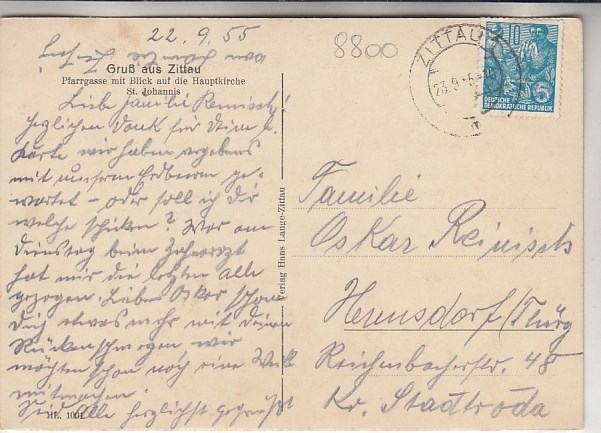 22.9.55
8800
Gruß aus Zittau
Pfarrgasse mit Blick auf die Hauptkirche
St. Johannis
Liebe Familie Reinisch!
herzlichen Dank für Deine l.
Karte wir haben vergebens
mit unsern Erdbeeren ge-
wartet – oder soll ich dir
welche schicken? War am
Dienstag beim Zahnarzt
hat mir die letzten alle
gezogen Lieber Oskar schone
Dich etwas mehr mit deinen
Rückenschmerzen wir
möchten schon noch eine Weile
mitmachen.
Seid alle herzlichst gegrüßt
HL. 1001
Verlag Hans Lange-Zittau
ZITTAU
23.9.55
10
5
DEUTSCHE
DEMOKRATISCHE REPUBLIK
Familie
Oskar Reinisch
Hermsdorf/Thürg
Reichenbacherstr. 48
Kr. Stadtroda